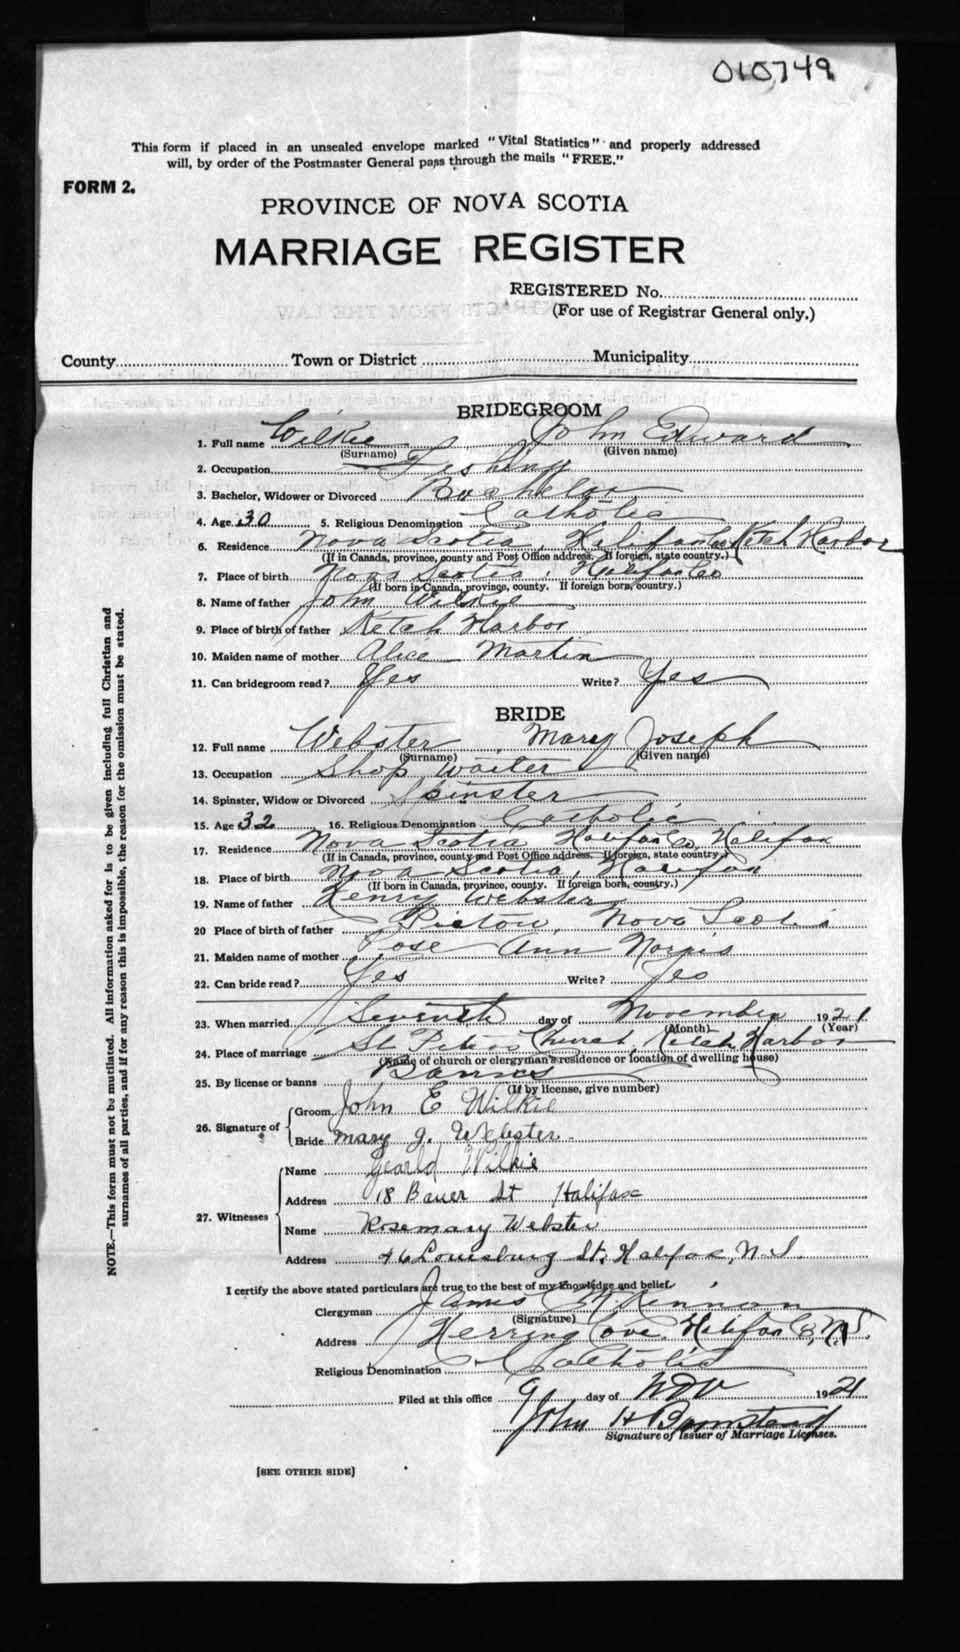 010749
This form if placed in an unsealed envelope marked "Vital Statistics" and properly addressed
will, by order of the Postmaster General pass through the mails "FREE."
FORM 2.
PROVINCE OF NOVA SCOTIA
MARRIAGE REGISTER
REGISTERED No.
(For use of Registrar General only.)
County Town or District Municipality
BRIDEGROOM
1. Full name Wilkie John Edward
(Surname) (Given name)
2. Occupation Fishing
3. Bachelor, Widower or Divorced Bachelor
4. Age 30 5. Religious Denomination Catholic
6. Residence Nova Scotia, Halifax Co Ketch Harbor
(If in Canada, province, county and Post Office address. If foreign, state country.)
7. Place of birth Nova Scotia, Halifax Co
(If born in Canada, province, county. If foreign born, country.)
8. Name of father John Wilkie
9. Place of birth of father Ketch Harbor
10. Maiden name of mother Alice Martin
11. Can bridegroom read? Yes Write? Yes
BRIDE
12. Full name Webster, Mary Joseph
(Surname) (Given name)
13. Occupation Shop Waiter
14. Spinster, Widow or Divorced Spinster
15. Age 32 16. Religious Denomination Catholic
17. Residence Nova Scotia Halifax Co, Halifax
(If in Canada, province, county and Post Office address. If foreign, state country.)
18. Place of birth Nova Scotia, Halifax
(If born in Canada, province, county. If foreign born, country.)
19. Name of father Henry Webster
20 Place of birth of father Pictou, Nova Scotia
21. Maiden name of mother Ann Norris
22. Can bride read? Yes Write? Yes
23. When married Seventh day of November 1921
(Month) (Year)
24. Place of marriage St Peters Church, Ketch Harbor
(Name of church or clergyman's residence or location of dwelling house)
25. By license or banns Banns
(If by license, give number)
26. Signature of
Groom John E Wilkie
Bride Mary J. Webster.
27. Witnesses
Name Gearld Wilkie
Address 18 Bauer St Halifax
Name Rosemary Webster
Address 46 Louisburg St. Halifax, N.S.
I certify the above stated particulars are true to the best of my knowledge and belief.
Clergyman James McKinnon
(Signature)
Address Herring Cove, Halifax Co, N.S.
Religious Denomination Catholic
Filed at this office 9 day of Nov 1921
John H Barnstead
Signature of Issuer of Marriage Licenses.
[SEE OTHER SIDE]
NOTE.—This form must not be mutilated. All information asked for is to be given including full Christian and
surnames of all parties, and if for any reason this is impossible, the reason for the omission must be stated.